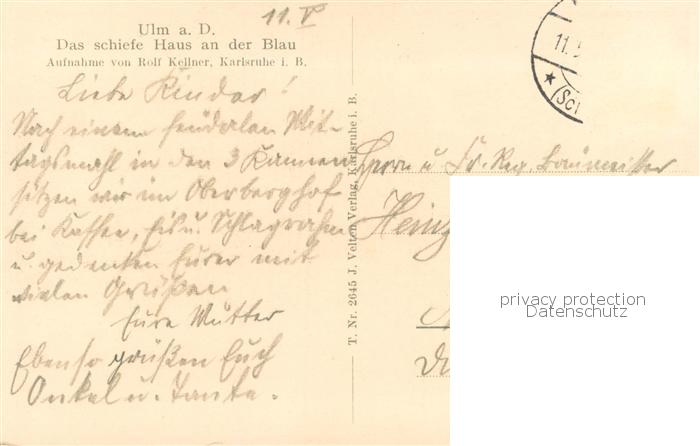 11. V
Ulm a. D.
Das schiefe Haus an der Blau
Aufnahme von Rolf Kellner, Karlsruhe i. B.
Liebe Kinder!
Nach einem feudalen Mit-
tagsmahl in den 3 Kannen
sitzen wir im Oberberghof
bei Kaffee, Eis u. Schlagrahm
u. gedenken Eurer mit
vielen Grüßen
Eure Mutter
Ebenso grüßen Euch
Onkel u. Tante.
T. Nr. 2645 J. Velten Verlag, Karlsruhe i. B.
11.
(Sc
Herrn u. Fr. Reg. Baumeister
Heinz
privacy protection
Datenschutz